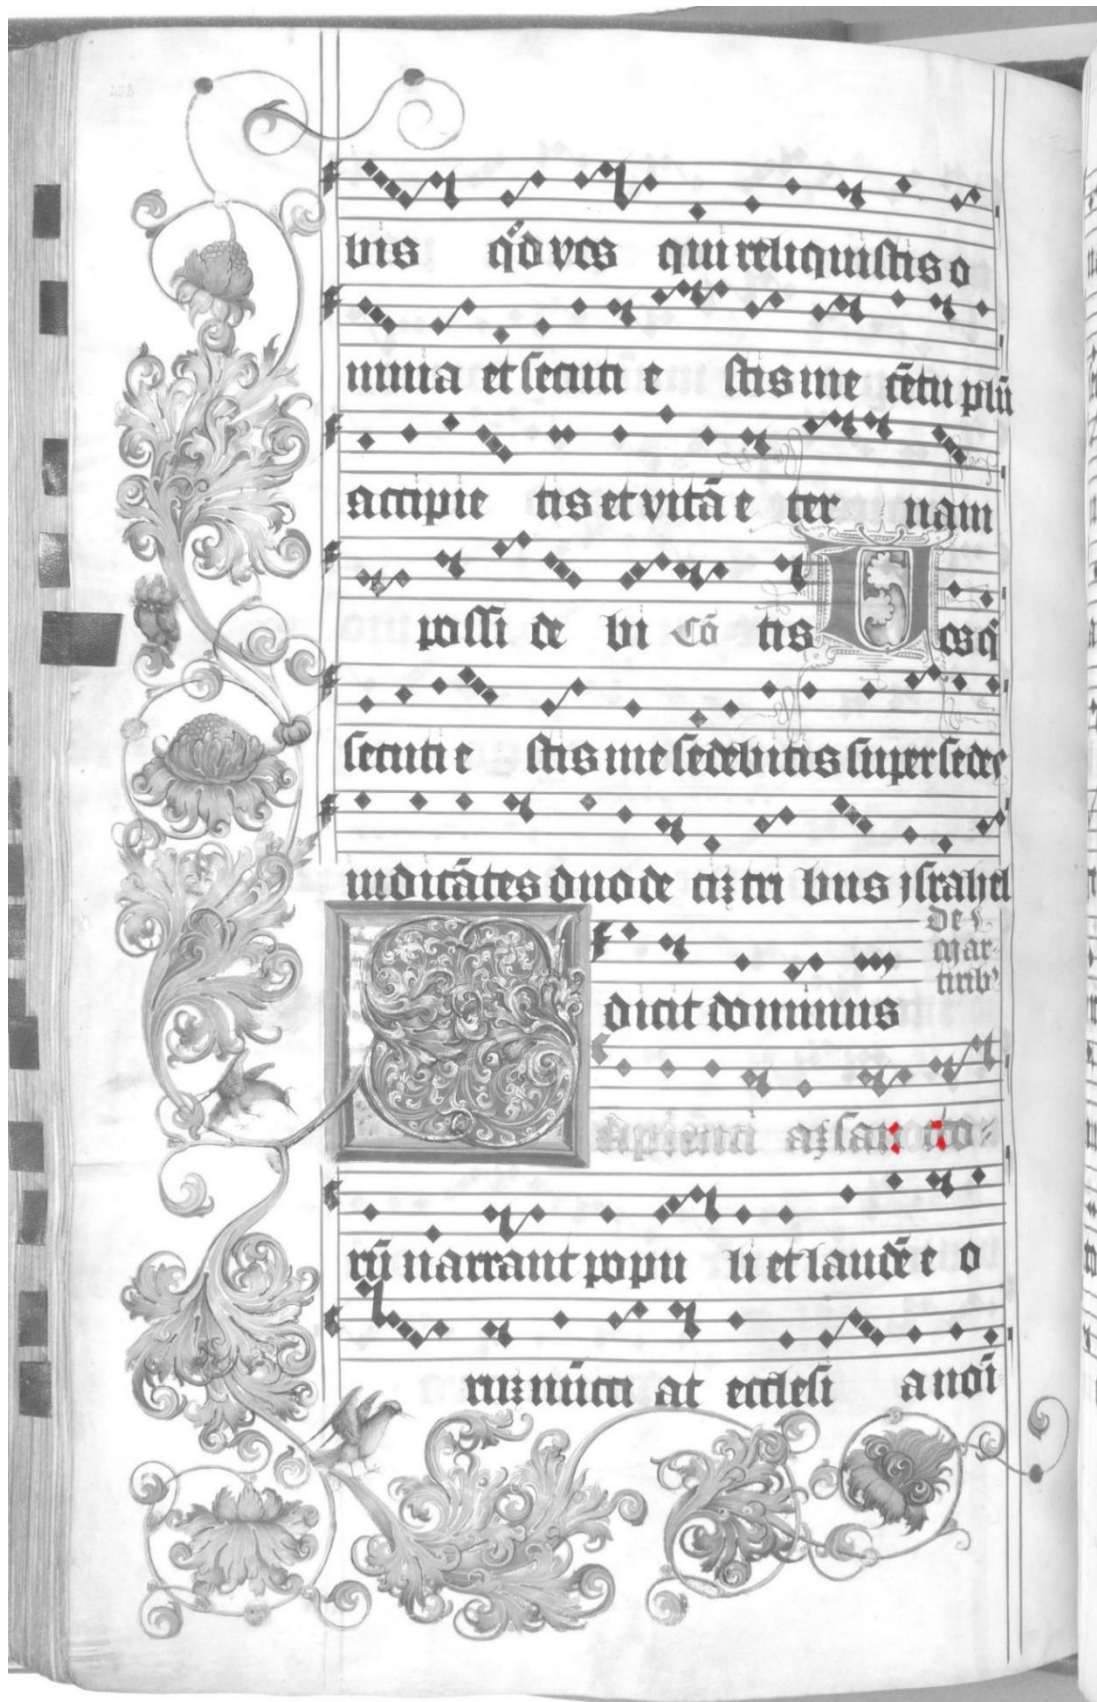 bis q̄d vos qui reliquistis o
mnia et secuti e stis me cētu plū
accipie tis et vitā e ter nam
possi de bi Cō tis Uos q̄
secuti e stis me sedebitis super sedes
iudicātes duode cīꝫ tri bus jsrahel
De
mar
tirib⁹
dicit dominus
Sapienti aꝫ san cto
rū narrant popu li et laudē e o
ruꝫ nūcci at ecclesi a